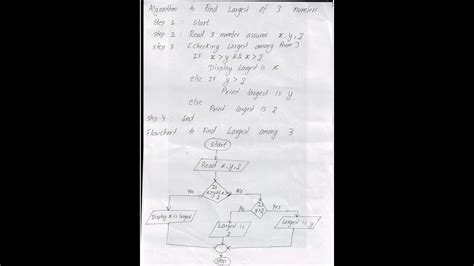 Algorithm to Find Largest of 3 numbers
Step 1 : Start
Step 2 : Read 3 number assume x, y, z
Step 3 [checking Largest among them]
IF x > y && x > z
Display Largest is x
else IF y > z
Print largest is y
else
Print largest is z
Step 4 End
Flowchart to Find Largest among 3
Start
Read x, y, z
Yes
No
No
Yes
Display x is largest
Largest is z
Largest is y
Stop